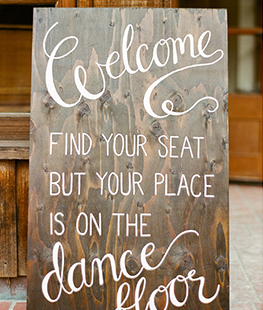 Welcome
FIND YOUR SEAT
BUT YOUR PLACE
IS ON THE
dance
floor